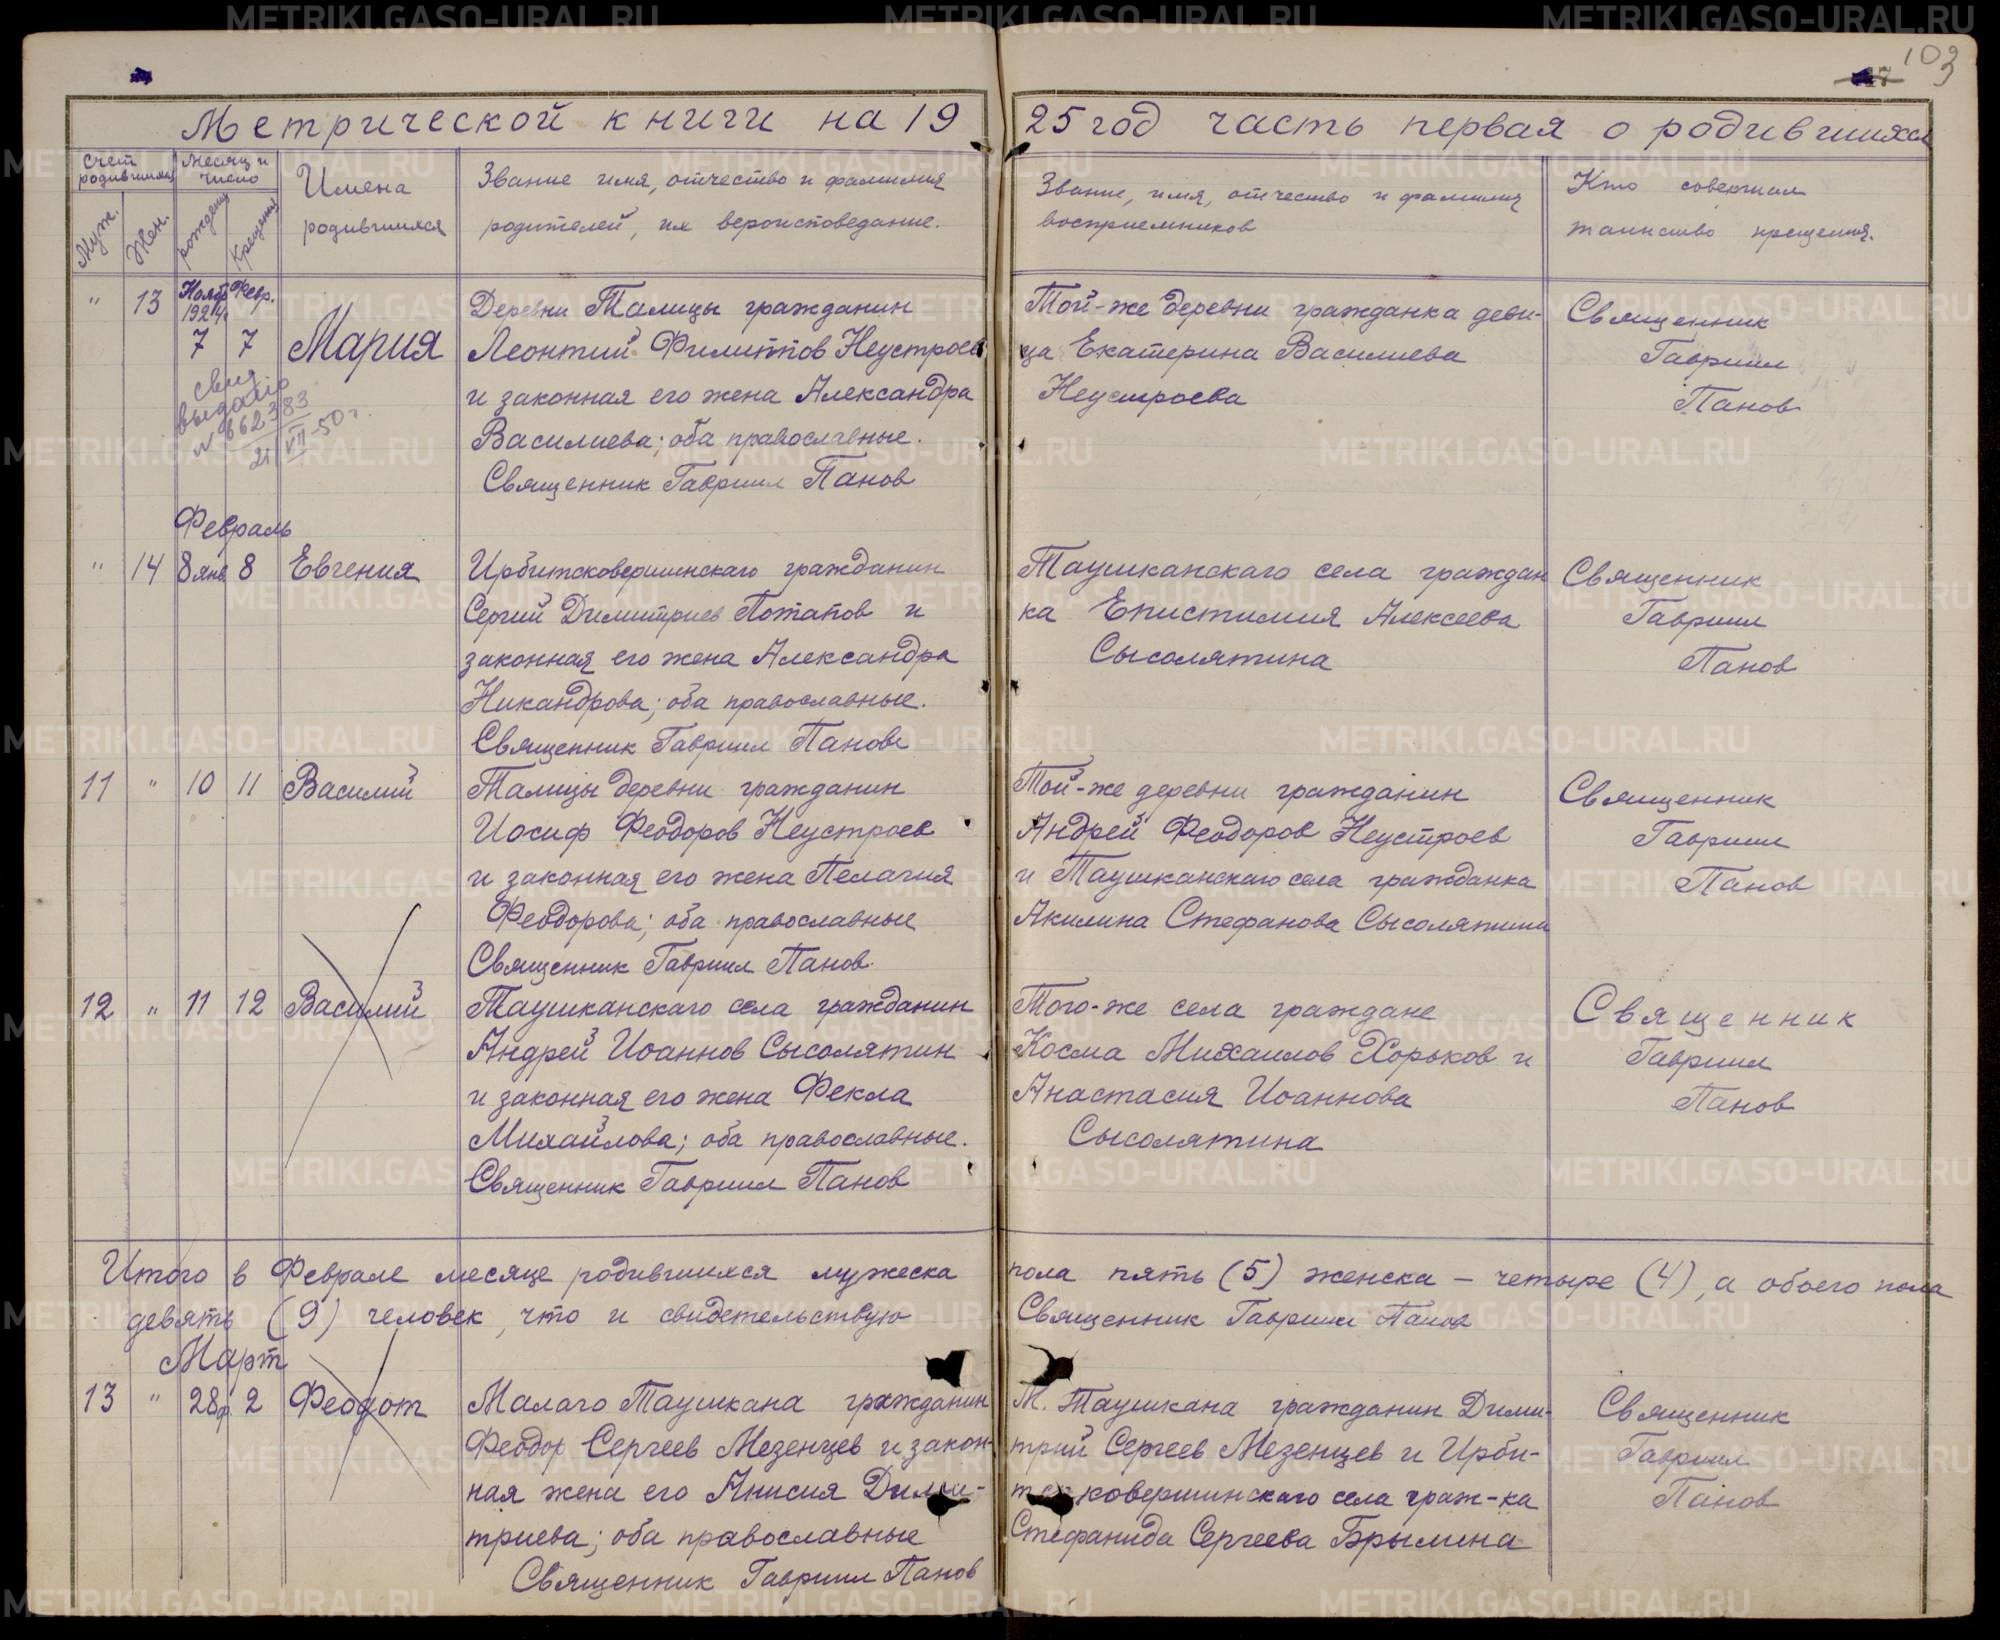 103
Метрической книги на 1925 год часть первая о родившихся
Счет родившихся
Муж.
Жен.
Месяц и число
рождения
Крещения
Имена
родившихся
Звание имя, отчество и фамилия
родителей, их вероисповедание.
Звание, имя, отчество и фамилия
восприемников
Кто совершил
таинство крещения.
" 13
Нояб. 1924 г. 7
Февр. 7
Мария
Деревни Талицы гражданин
Леонтий Филиппов Неустроев
и законная его жена Александра
Василиева; оба православные.
Священник Гавриил Панов
Той-же деревни гражданка деви-
ца Екатерина Василиева
Неустроева
Священник
Гавриил
Панов
свид.
выдано
N 662383
21 VII-50 г.
Февраль
" 14 8 янв 8 Евгения
Ирбитсковершинскаго гражданин
Сергий Димитриев Потапов и
законная его жена Александра
Никандрова; оба православные.
Священник Гавриил Панов
Таушканскаго села граждан
ка Епистимия Алексеева
Сысолятина
Священник
Гавриил
Панов
11 " 10 11 Василий
Талицы деревни гражданин
Иосиф Феодоров Неустроев
и законная его жена Пелагия
Феодорова; оба православные
Священник Гавриил Панов.
Той-же деревни гражданин
Андрей Феодоров Неустроев
и Таушканскаго села гражданка
Акилина Стефанова Сысолятина
Священник
Гавриил
Панов
12 " 11 12 Василий
Таушканскаго села гражданин
Андрей Иоаннов Сысолятин
и законная его жена Фекла
Михайлова; оба православные.
Священник Гавриил Панов
Того-же села граждане
Косма Михаилов Хорьков и
Анастасия Иоаннова
Сысолятина
Священник
Гавриил
Панов
Итого в Феврале месяце родившихся мужеска пола пять (5) женска – четыре (4), а обоего пола
девять (9) человек, что и свидетельствую Священник Гавриил Панов
Март
13 " 28ф. 2 Феодот
Малаго Таушкана гражданин
Феодор Сергеев Мезенцев и закон-
ная жена его Анисия Дими-
триева; оба православные
Священник Гавриил Панов
М. Таушкана гражданин Дими-
трий Сергеев Мезенцев и Ирби-
тсковершинскаго села граж-ка
Стефанида Сергеева Брылина
Священник
Гавриил
Панов
METRIKI.GASO-URAL.RU